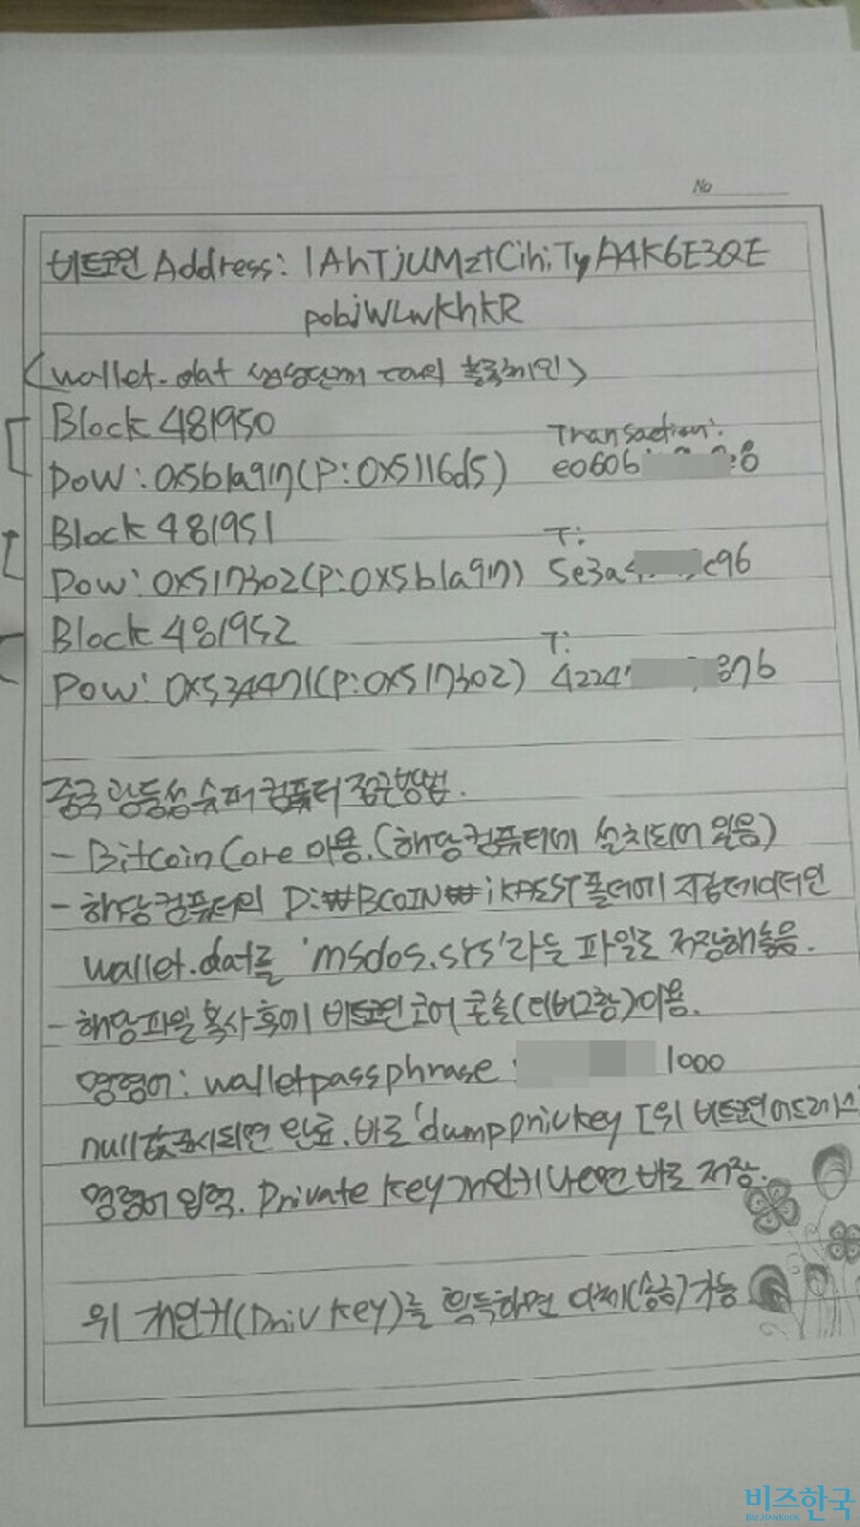 No
비트코인 Address: 1AhTjUMztCihiTyA4K6E3QE
pobjWLwKhkR
(wallet.dat 생성단계 대의 블록체인)
Block 481950
Transaction:
PoW: 0x5b1a917(P:0x5116d5) e0606 e8
Block 481951
T:
Pow: 0x517302(P:0x5b1a917) 5e3a4 c96
Block 481952
T:
Pow: 0x534471(P:0x517302) 4224 876
중국 광동성 슈퍼컴퓨터 접근방법.
- Bitcoin Core 이용.(해당컴퓨터에 설치되어 있음)
- 해당컴퓨터의 D:₩BCOIN₩ 폴더에 지갑데이터인
wallet.dat를 'msdos.srs'라는 파일로 저장해놓음.
- 해당파일 복사후에 비트코인 코어 콘솔(디버그창)이용.
명령어: walletpassphrase 1000
null값표시되면 완료. 바로 'dumpprivkey [위 비트코인어드레스
명령어 입력. Private Key개인키나오면 바로 저장.
위 개인키(Privkey)를 획득하면 이체(송금)가능
비즈한국
BIZHANKOOK